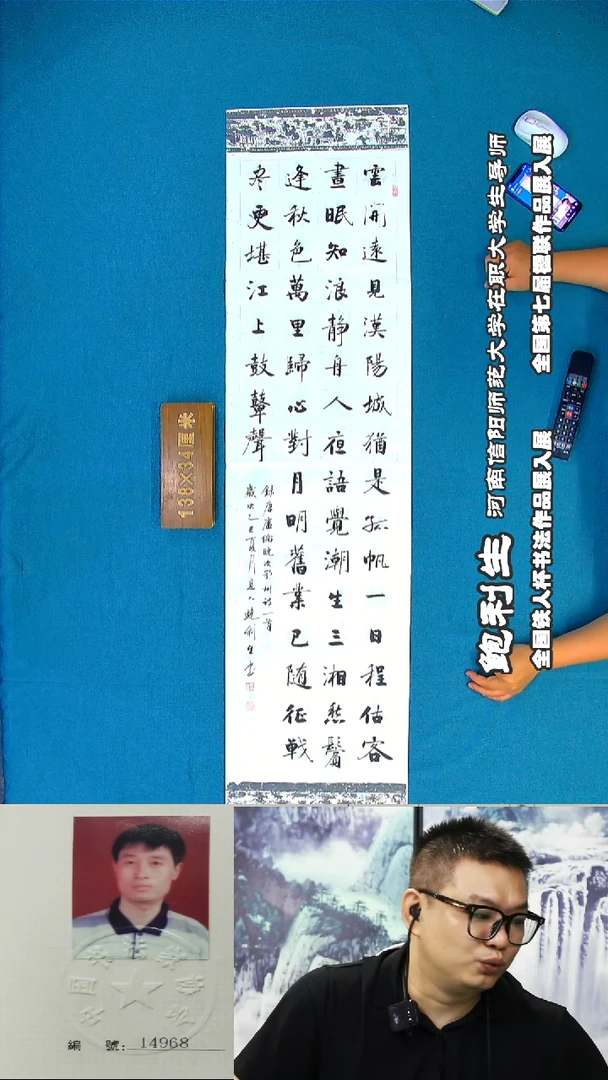 雲開遠見漢陽城猶是孤帆一日程估客
晝眠知浪静舟人夜語覺潮生三湘愁鬢
逢秋色萬里歸心對月明舊業已隨征戰
盡更堪江上鼓鼙聲
録唐盧綸晚次鄂州詩一首
鮑利生書
138×34厘米
鲍利生
河南信阳师范大学在职大学生导师
全国铁人杯书法作品展入展
全国第七届楹联作品展入展
編 號: 14968